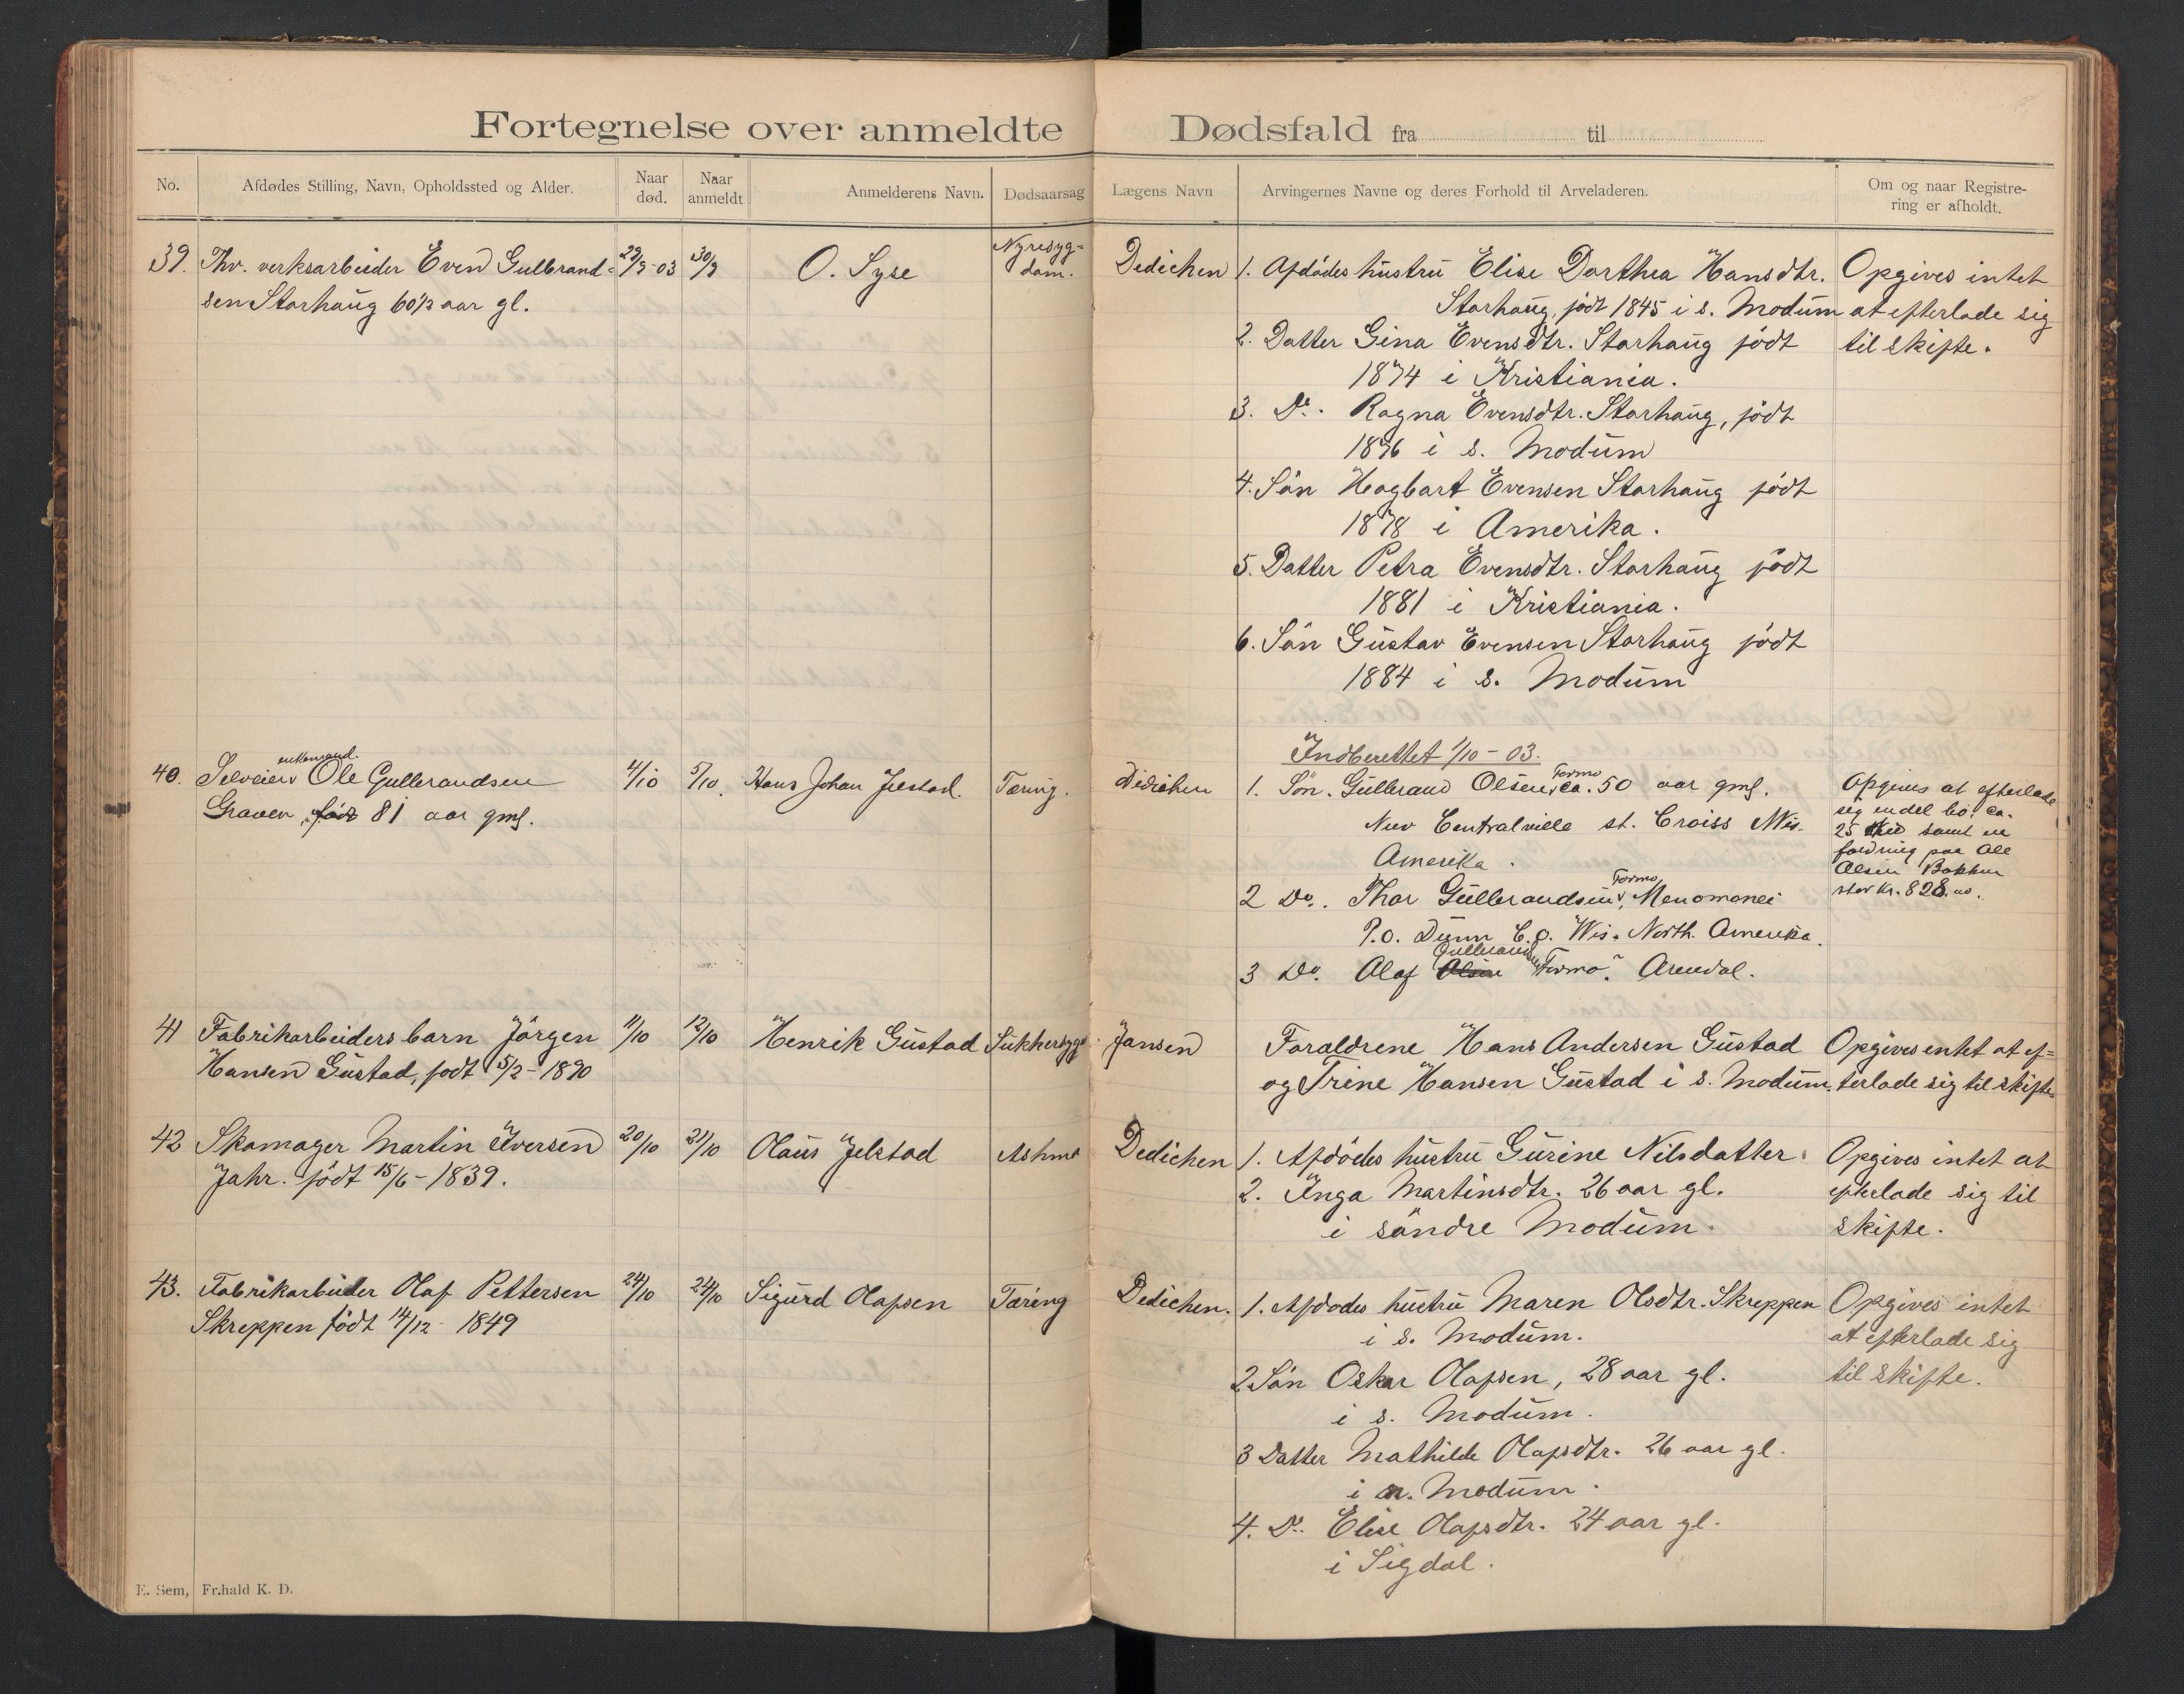 Fortegnelse over anmeldte Dødsfald fra til
No.
Afdødes Stilling, Navn, Opholdssted og Alder.
Naar
død.
Naar
anmeldt
Anmelderens Navn.
Dødsaarsag
Lægens Navn
Arvingernes Navne og deres Forhold til Arveladeren.
Om og naar Registre-
ring er afholdt.
39. Thv. verksarbeider Even Gulbrand=
sen Storhaug 60½ aar gl.
29/9-03
30/9
O. Syse
Nyresyg=
dom.
Dedichen
1. Afdödes hustru Elise Dorthea Hansdtr.
Storhaug, födt 1845 i s. Modum
2. Datter Gina Evensdtr. Storhaug födt
1874 i Kristiania.
3. Do. Ragna Evensdtr. Storhaug, födt
1876 i s. Modum
4. Sön Hagbart Evensen Storhaug födt
1878 i Amerika.
5. Datter Petra Evensdtr. Storhaug födt
1881 i Kristiania.
6. Sön Gustav Evensen Storhaug födt
1884 i s. Modum
Opgives intet
at efterlade sig
til skifte.
40.
enkemand.
Selveier Ole Gullerandsen
Graven, født 81 aar gml.
4/10
5/10.
Hans Johan Jelstad.
Tæring.
Didichen
Indberettet 1/10-03.
Formo
1. Søn. Gullerand Olsen, ca. 50 aar gml.
New Centralville st. Croiss Wis.
Amerika.
Formo
2 Do. Thor Gullerandsen, Menomonei
P.O. Dunn C.o. Wis. North. Amerika.
Gullerandsen
3 Do. Olaf Olsen Formo. Arendal.
Opgives at efterlade
sig endel bo. ca.
25 samt en
fordring paa Ole
Olsen Bakken
stor kr. 828.00.
41 Fabrikarbeiders barn Jörgen
Hansen Gustad, födt 5/2-1890
11/10
12/10
Henrik Gustad
Sukkersyge
Jansen
Foraldrene Hans Andersen Gustad
og Trine Hansen Gustad i s. Modum.
Opgives entet at ef=
terlade sig til skifte.
42 Skomager Martin Iversen
Jahr. födt 15/6-1839.
20/10
21/10
Olaus Jelstad
Ashma
Dedichen
1. Afdödes hustru Gurine Nilsdatter.
2. Inga Martinsdtr. 26 aar gl.
i söndre Modum.
Opgives intet at
efterlade sig til
skifte.
43. Fabrikarbeider Olaf Pettersen
Skreppen födt 14/12-1849
24/10
24/10
Sigurd Olafsen
Tæring
Dedichen.
1. Afdödes hustru Maren Olsdtr. Skreppen
i s. Modum.
2 Sön Oskar Olafsen, 28 aar gl.
i s. Modum.
3 Datter Mathilde Olafsdtr. 26 aar gl.
i n. Modum.
4. Do. Elise Olafsdtr. 24 aar gl.
i Sigdal.
Opgives intet
at efterlade sig
til skifte.
E. Sem, Fr.hald K. D.